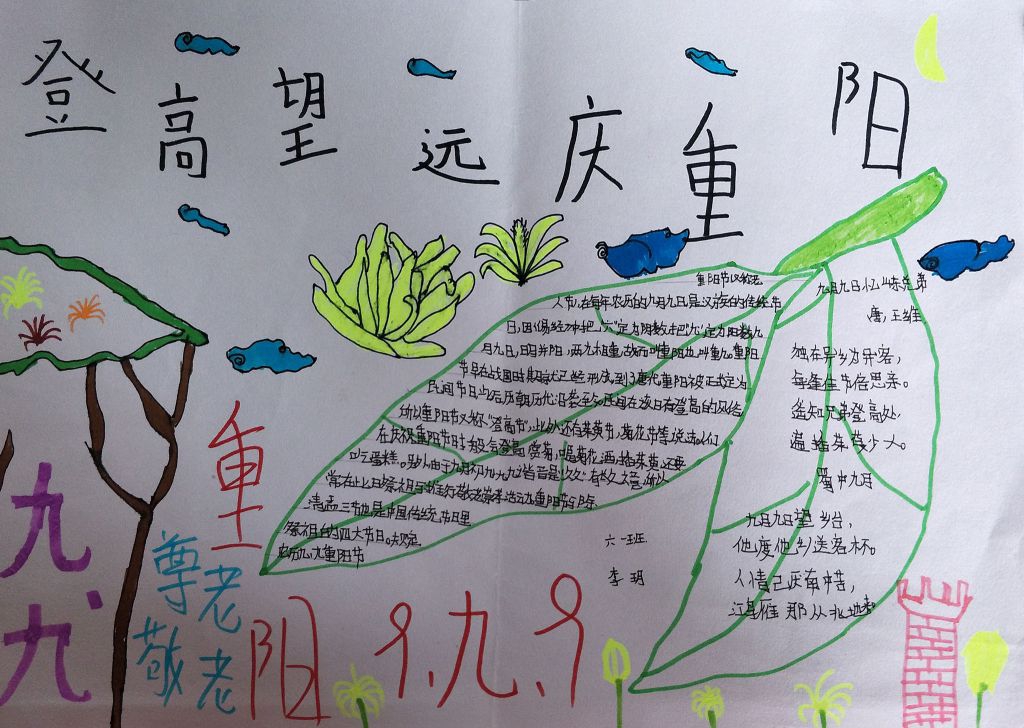 登高望远庆重阳
重阳节又称老
人节,在每年农历的九月九日是汉族的传统节
日,因《易经》中把"六"定为阴数,把"九"定为阳数,九
月九日,日月并阳,两九相重,故而叫重阳,也叫重九,重阳
节早在战国时期就已经形成,到了唐代重阳被正式定为
民间节日,此后历朝历代沿袭至今,民间在该日有登高的风俗,
所以重阳节又称"登高节",此外还有茱萸节,菊花节等说法,人们
在庆祝重阳节时一般会登高,赏菊,喝菊花酒,插茱萸,还要
吃蛋糕。另外由于九月初九"九九"谐音是"久久"有长久之意,所以
常在此日祭祖与推行敬老等活动,重阳节与除
清盂三节也是中国传统节日里
祭祖的四大节日。
农历九九重阳节
九月九日忆山东兄弟
唐,王维
独在异乡为异客,
每逢佳节倍思亲。
遥知兄弟登高处,
遍插茱萸少一人。
蜀中九日
九月九日望乡台,
他席他乡送客杯。
人情已厌南中苦,
鸿雁那从北地来
六一班
李玥
九、九
重阳
尊老
敬老
九.九.九